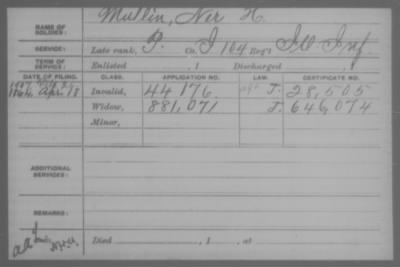 NAME OF SOLDIER: Mullin, Ner H.
SERVICE: Late rank, P. Co. I 164 Reg't Inf
TERM OF SERVICE: Enlisted , 1 Discharged , 1
DATE OF FILING. CLASS. APPLICATION NO. LAW. CERTIFICATE NO.
Apr 18 Invalid, 44 176 28,505
Widow, 881,071 646,074
Minor,
ADDITIONAL SERVICES:
REMARKS:
Died , 1 , at